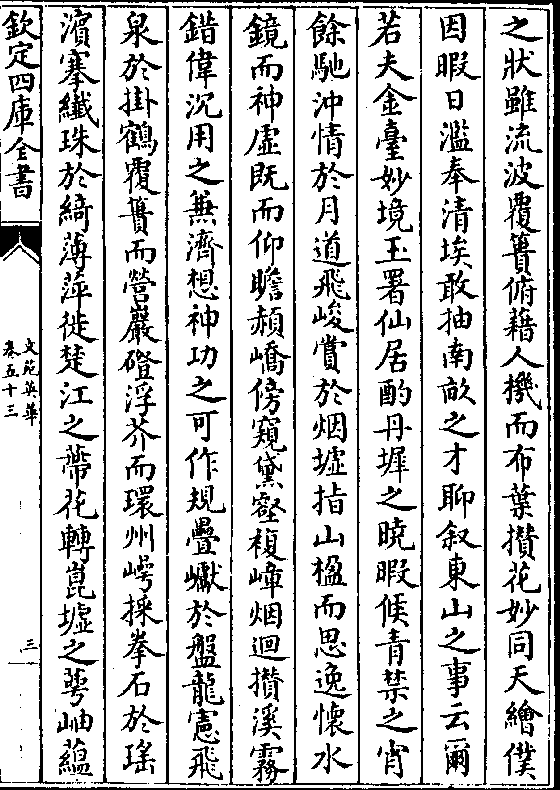 之狀雖流波覆簣俯藉人機而布葉攅花妙同天繪僕
因暇日濫奉清埃敢抽南畝之才聊叙東山之事云爾
若夫金臺妙境玉署仙居酌丹墀之曉暇候青禁之宵
餘馳沖情於月道飛峻賞於烟墟指山楹而思逸懷水
鏡而神虚既而仰瞻赬嶠傍窺黛壑複嶂烟迴攅溪霧
錯偉沉用之無濟想神功之可作規疊巘於盤龍憲飛
泉於掛鶴覆簣而營巖磴浮芥而環州嶼採拳石於瑶
濱搴纎珠於綺薄萍徙楚江之蔕花轉崑墟之萼岫蘊
欽定四庫全書
文苑英華
卷五十三
三